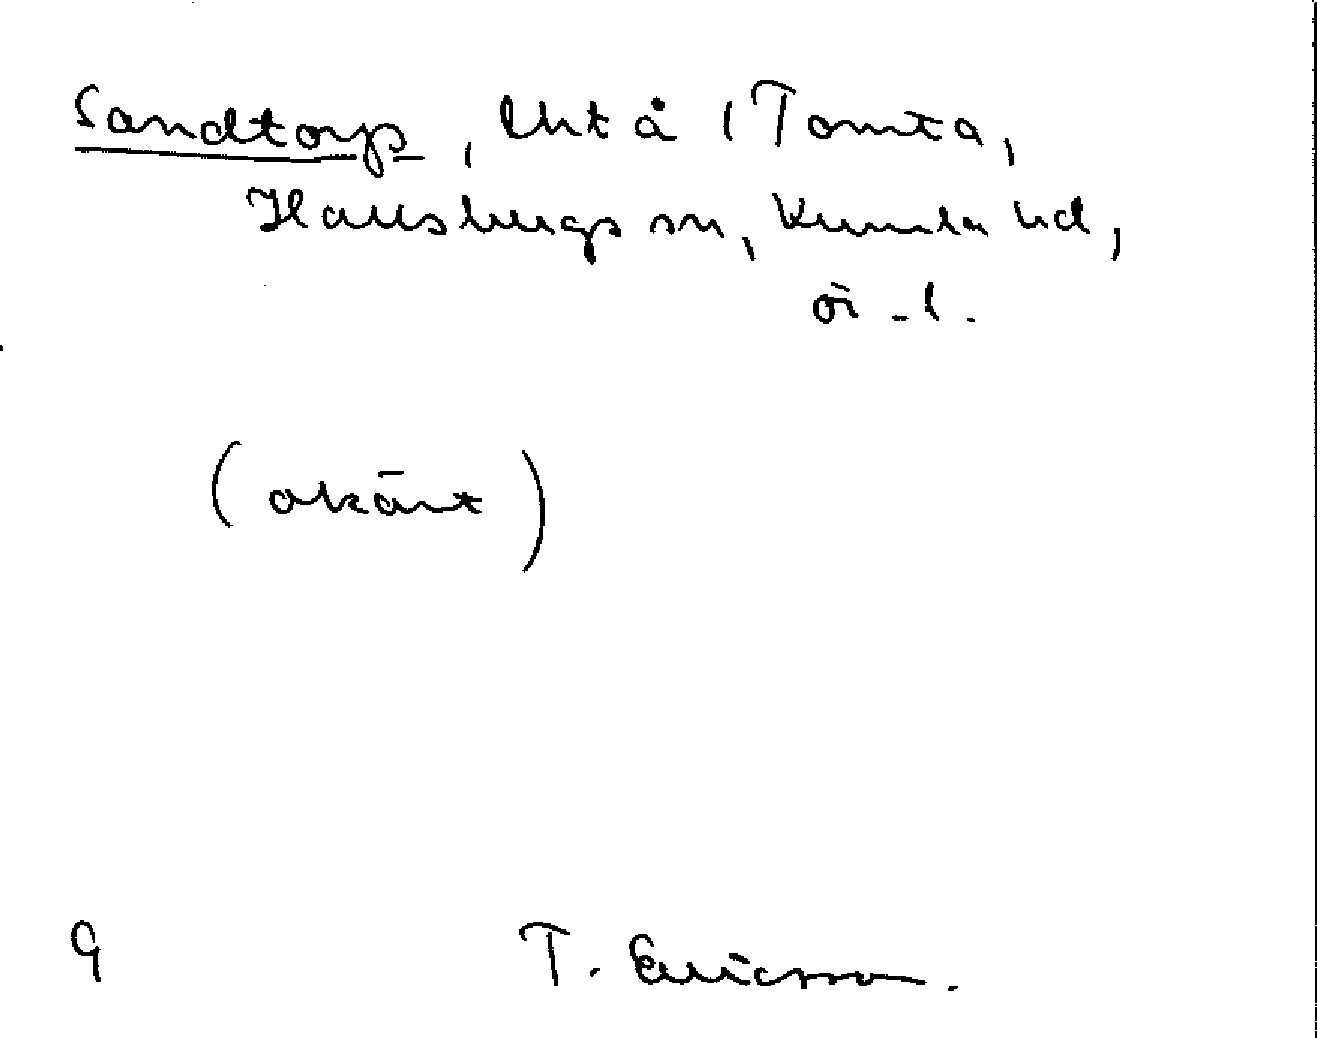 Sandtorp, lht å 1 Tomta,
Hallsbergs sn, Kumla hd,
ör. l.
(okänt)
9 T. Ericsson.